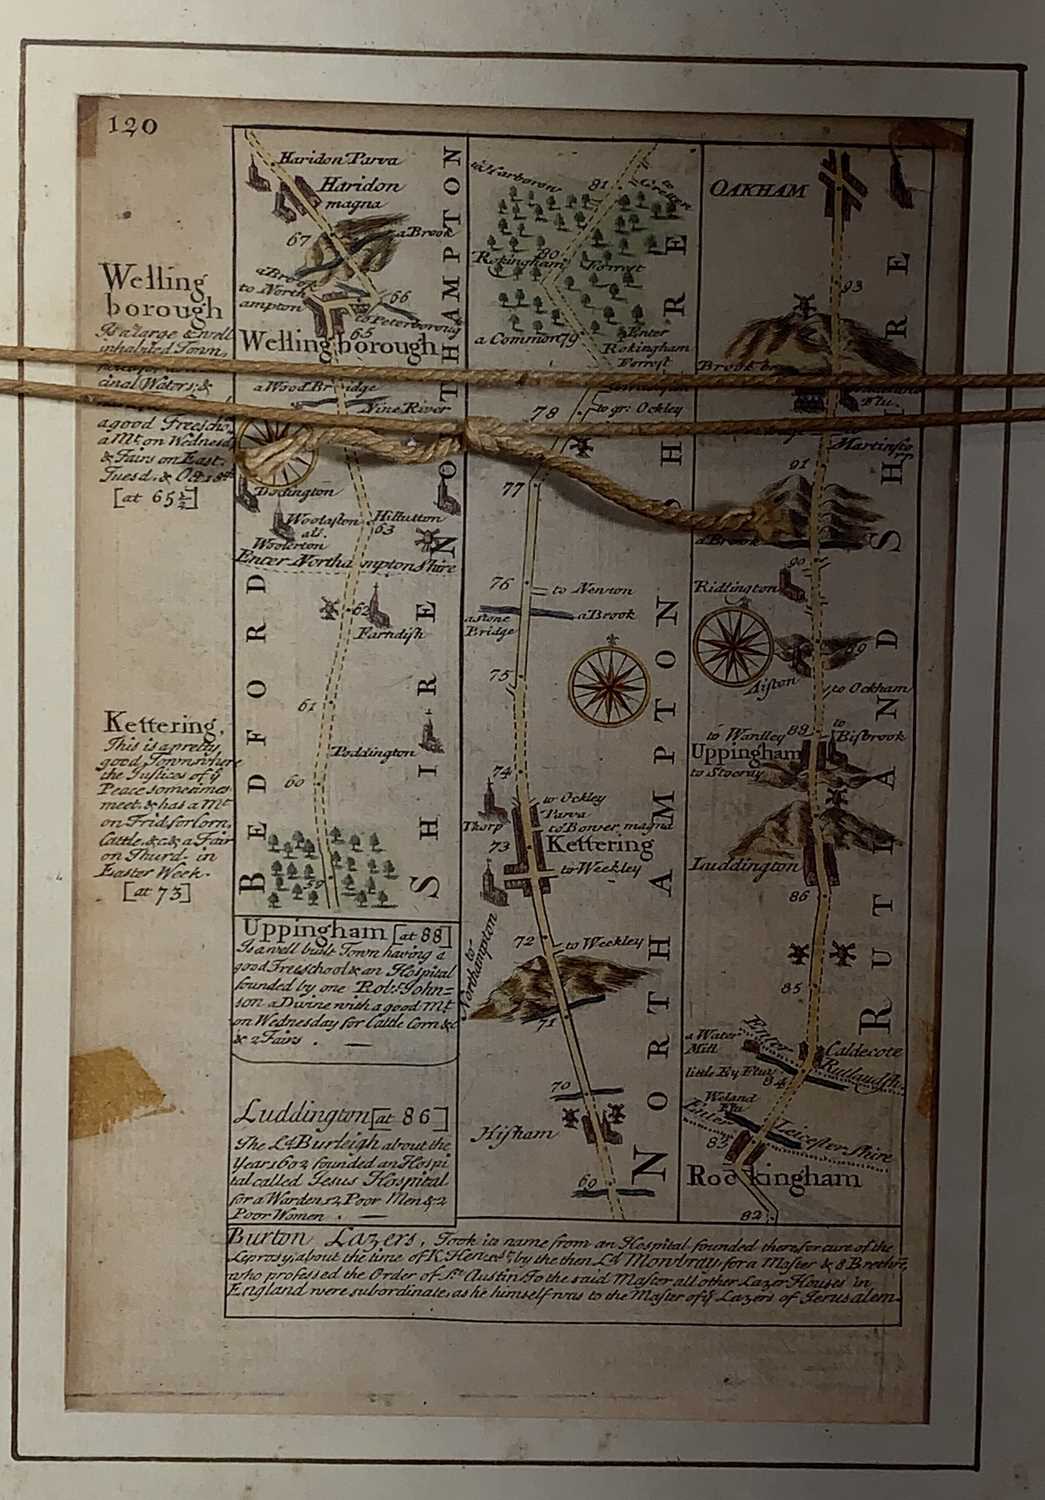 120
Welling
borough
Is a large & well
inhabited Town,
cinal Waters; &
a good Freescho.
a Mt. on Wednesd
& Fairs on East.
Tuesd. & Oct 18th
[at 65½]
Kettering,
This is a pretty
good Town where
the Justices of ye
Peace sometimes
meet. & has a Mt.
on Frid. for Corn,
Cattle, &c. & a Fair
on Thurd. in
Easter Week.
[at 73]
Haridon Parva
Haridon
magna
67
a Brook
a Brook
to North
ampton
66
to Peterboroug
65
Wellingborough
a Wood Bridge
Nine River
Dodington
Woolaston
als.
Woolerton
Hillutton
63
Enter Northamptonshire
62
Farndish
61
Poddington
60
59
BEDFORD
SHIRE
NORTHAMPTON
Uppingham [at 88]
Is a well built Town having a
good Freeschool & an Hospital
founded by one Robt. John=
son a Divine with a good Mt.
on Wednesday for Cattle Corn &c
& 2 Fairs.
Luddington [at 86]
The Ld. Burleigh about the
Year 1602 founded an Hospi
tal called Jesus Hospital
for a Warden 12 Poor Men & 2
Poor Women.
to Harborou
81
80
Rokingham Forrest
a Common
79
Enter
Rokingham
Forrest
78
to gr: Ockley
77
76
to Newton
a stone
Bridge
a Brook
75
74
to Ockley
Parva
Thorp
to Bonser magna
73
Kettering
to Weekley
72
to Weekley
to
Northampton
71
70
Hisham
69
NORTHAMPTON
SHIRE
OAKHAM
93
Brook
Flu.
Martinstho
rp
91
a Brook
90
Ridlington
89
Aiston
to Ockham
to Wardley
88
to
Bisbrook
Uppingham
to Stoeray
Luddington
86
85
a Water
Mill
Enter
Caldecote
Rutlandsh.
little Ey Flu:
84
Weland
Flu
Enter
Leicestershire
83
Rockingham
82
RUTLANDSHIRE
Burton Lazers, Took its name from an Hospital founded there for cure of the
Leprosy, about the time of K. Hen: ye 1st. by the then Ld. Mowbray for a Master & 8 Brethrē,
who professed the Order of St. Austin. To the said Master all other Lazer Houses in
England were subordinate, as he himself was to the Master of ye Lazers of Jerusalem.